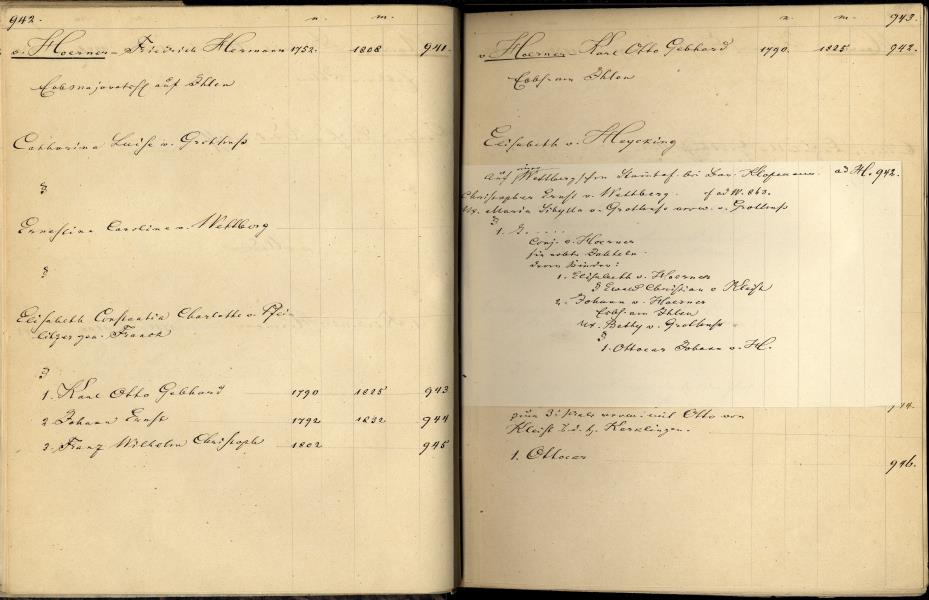 942.
n. m.
v. Hoerner Friedrich Hermann 1752. 1808 941.
Erbmajoratsh auf Ihlen
Catharina Luise v. Grotthuss
Ernestine Caroline v. Wettberg
Elisabeth Constantia Charlotte v. Pfei
litzer gen. Franck
1. Karl Otto Gebhard 1790 1825 943
2. Johann Ernst 1792 1832 944
3. Franz Wilhelm Christoph 1802 945
943.
n. m.
v. Hoerner Karl Otto Gebhard 1790. 1825 942.
Erbh. am Ihlen
Elisabeth v. Heycking
Auf Wettbergschen Stamtaf. bei Dav. Klopmann. ad H. 942.
Christopher Ernst v. Wettberg. cf ad W. 863.
Ux. Maria Sibylla v. Grotthuss verw. v. Grotthuss
1. J. . . . .
Conj. v. Hoerner
deren Kinder:
1. Elisabeth v. Hoerner
Ewald Christian v Kleist
2. Johann v. Hoerner
Erbh. am Ihlen
Ux. Betty v. Grotthuss
1. Ottocar Johann v. H.
Otto von
Kleist z. d. H. Kerklingen.
1. Ottocar 946.